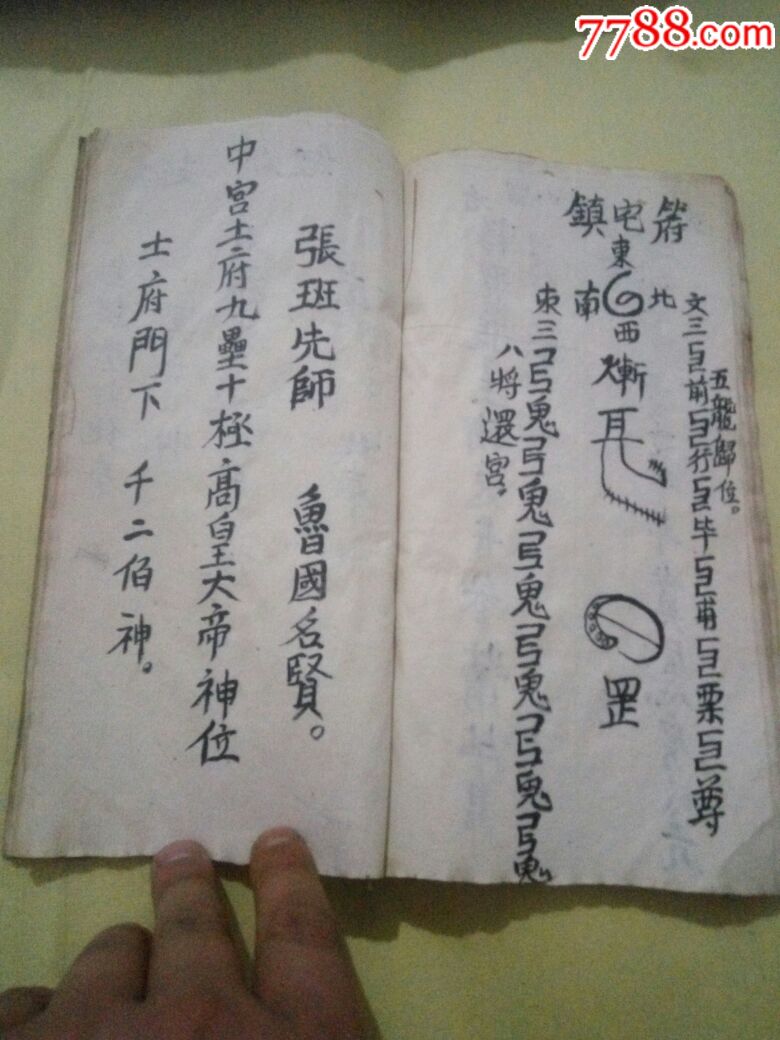 7788.com
鎮宅符
東
南 北
西
文三 前 行 毕 甫 栗 尊
五龍歸位。
耳
罡
東三 鬼 鬼 鬼 鬼 鬼 鬼
八將還宮。
張班先師 魯國名賢。
中宮土府九壘十極高皇大帝神位
士府門下 千二佰神。